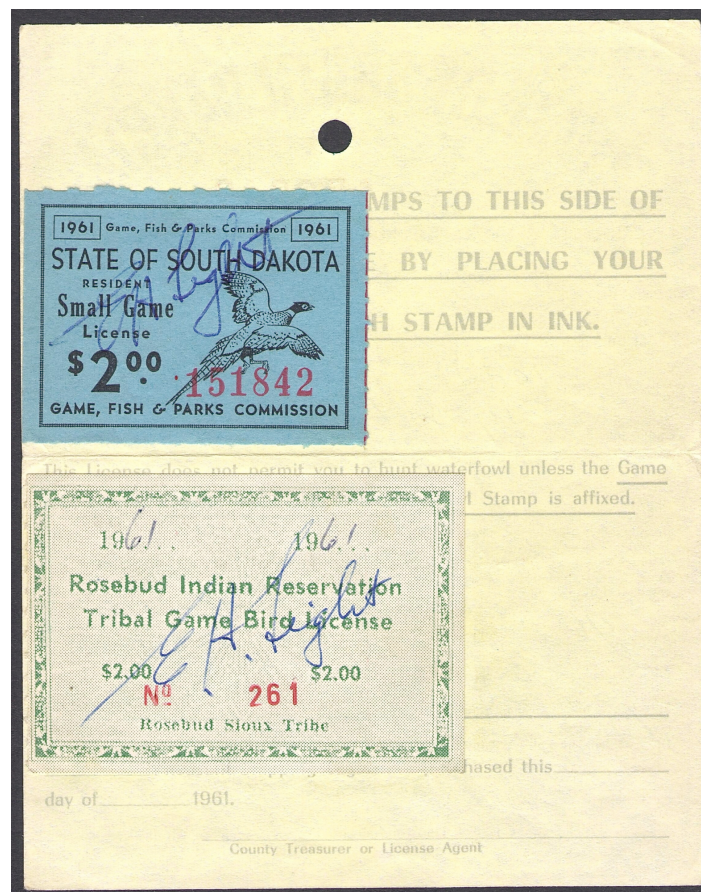 MPS TO THIS SIDE OF
BY PLACING YOUR
H STAMP IN INK.
1961 Game, Fish & Parks Commission 1961
STATE OF SOUTH DAKOTA
RESIDENT
Small Game
License
$2.00
151842
GAME, FISH & PARKS COMMISSION
This License does not permit you to hunt waterfowl unless the Game
Stamp is affixed.
1961.. 1961...
Rosebud Indian Reservation
Tribal Game Bird License
E. H. Light
$2.00 $2.00
No 261
Rosebud Sioux Tribe
chased this
day of 1961.
County Treasurer or License Agent